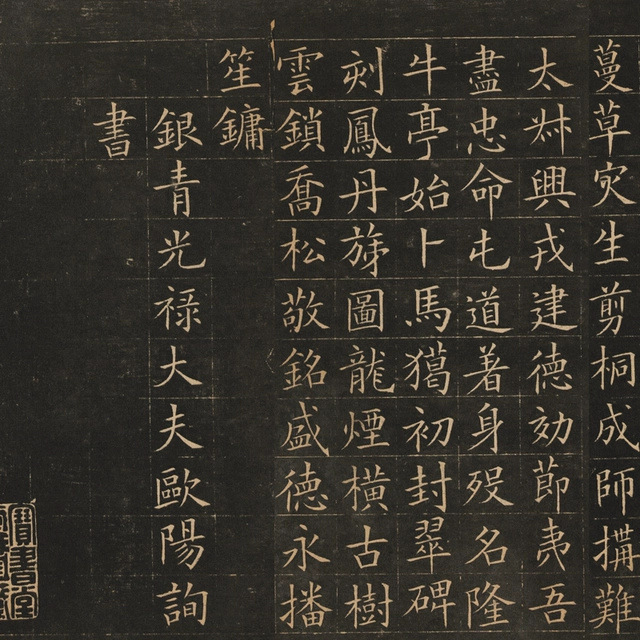 蔓草灾生剪桐成師搆難
太叔興戎建德効節夷吾
盡忠命屯道著身殁名隆
牛亭始卜馬獦初封翠碑
刻鳳丹旐圖龍煙橫古樹
雲鎖喬松敬銘盛德永播
笙鏞
銀青光禄大夫歐陽詢
書